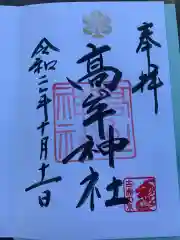 奉拝
高牟神社
令和二年十月十一日